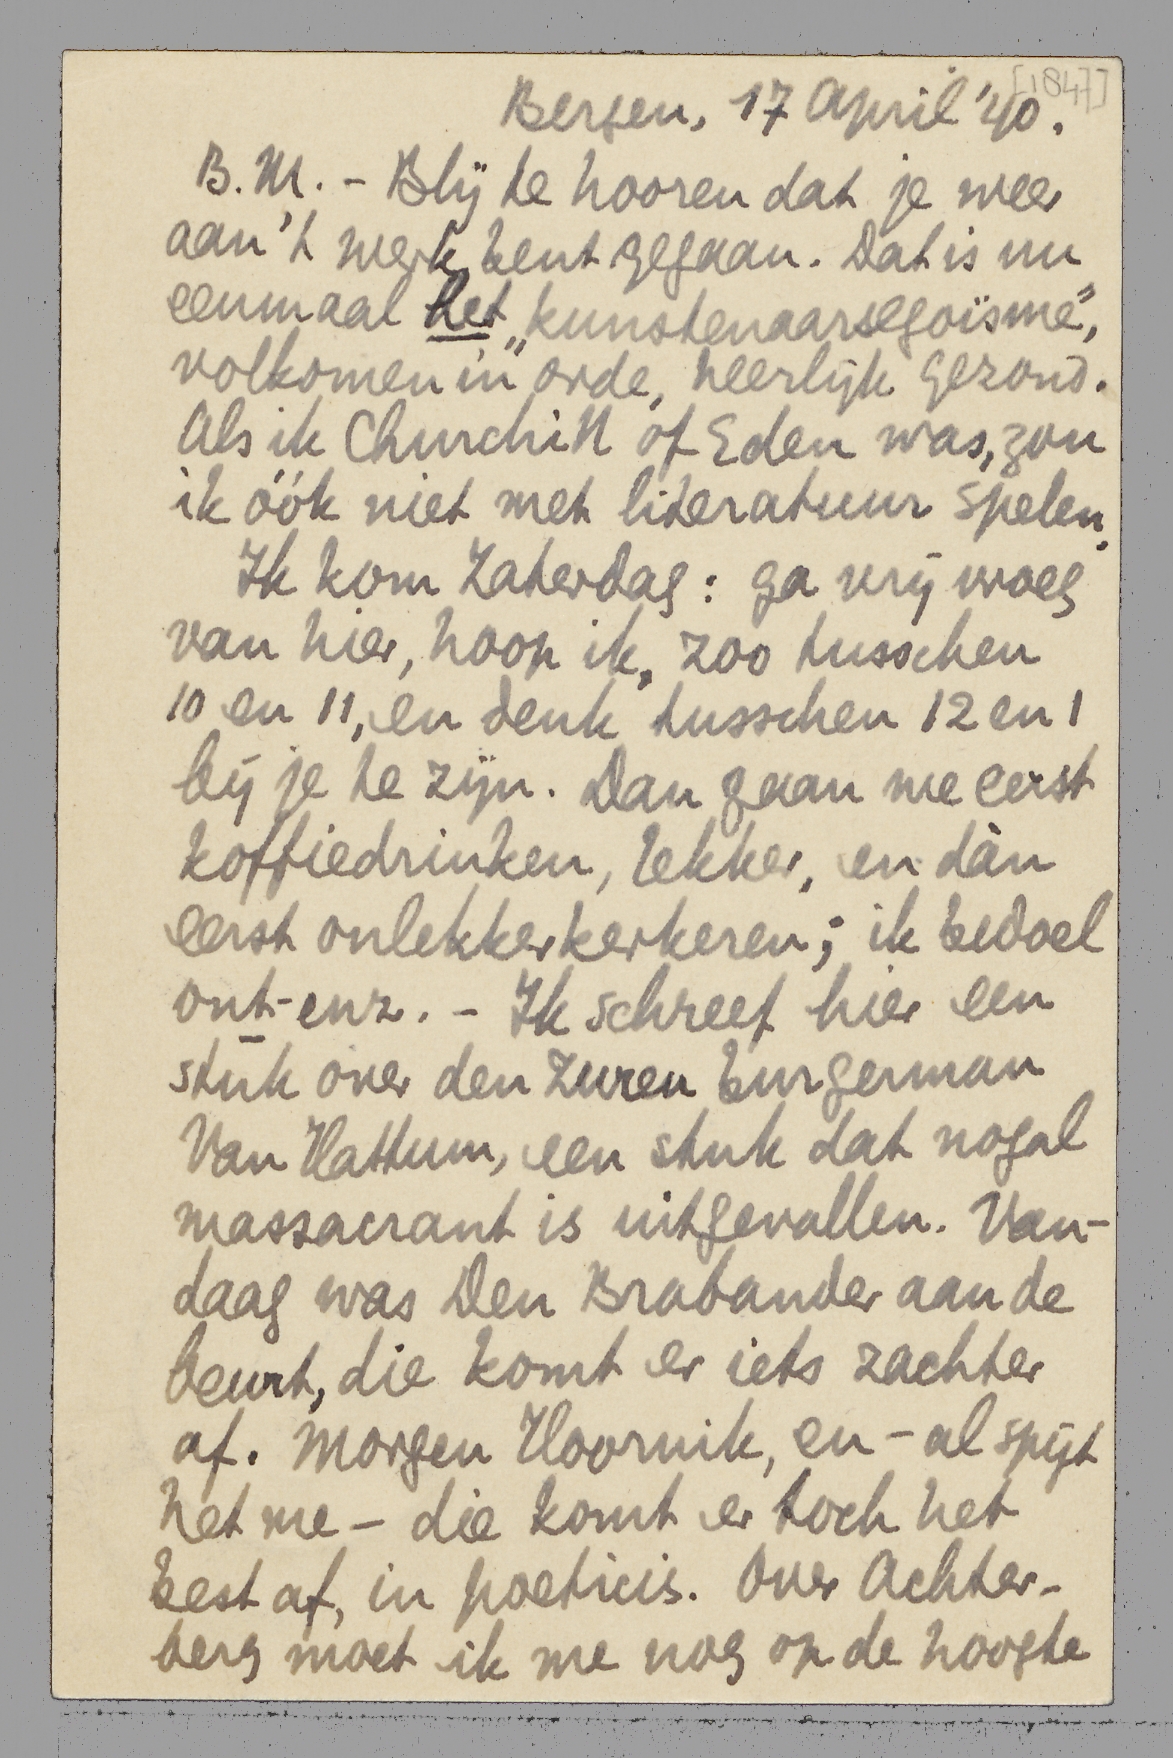 [1847]
Bergen, 17 April '40.
B.M. - Blij te hooren dat je weer
aan 't werk bent gegaan. Dat is nu
eenmaal het „kunstenaarsegoïsme",
volkomen in orde, heerlijk gezond.
Als ik Churchill of Eden was, zou
ik óók niet met literatuur spelen.
Ik kom Zaterdag: ga vrij vroeg
van hier, hoop ik, zoo tusschen
10 en 11, en denk tusschen 12 en 1
bij je te zijn. Dan gaan we eerst
koffiedrinken, lekker, en dàn
eerst onlekkerkerkeren; ik bedoel
ont-enz. - Ik schreef hier een
stuk over den zuren burgerman
Van Hattum, een stuk dat nogal
massacrant is uitgevallen. Van-
daag was Den Brabander aan de
beurt, die komt er iets zachter
af. Morgen Hoornik, en - al spijt
het me - die komt er toch het
best af, in poeticis. Over Achter-
berg moet ik me nog op de hoogte